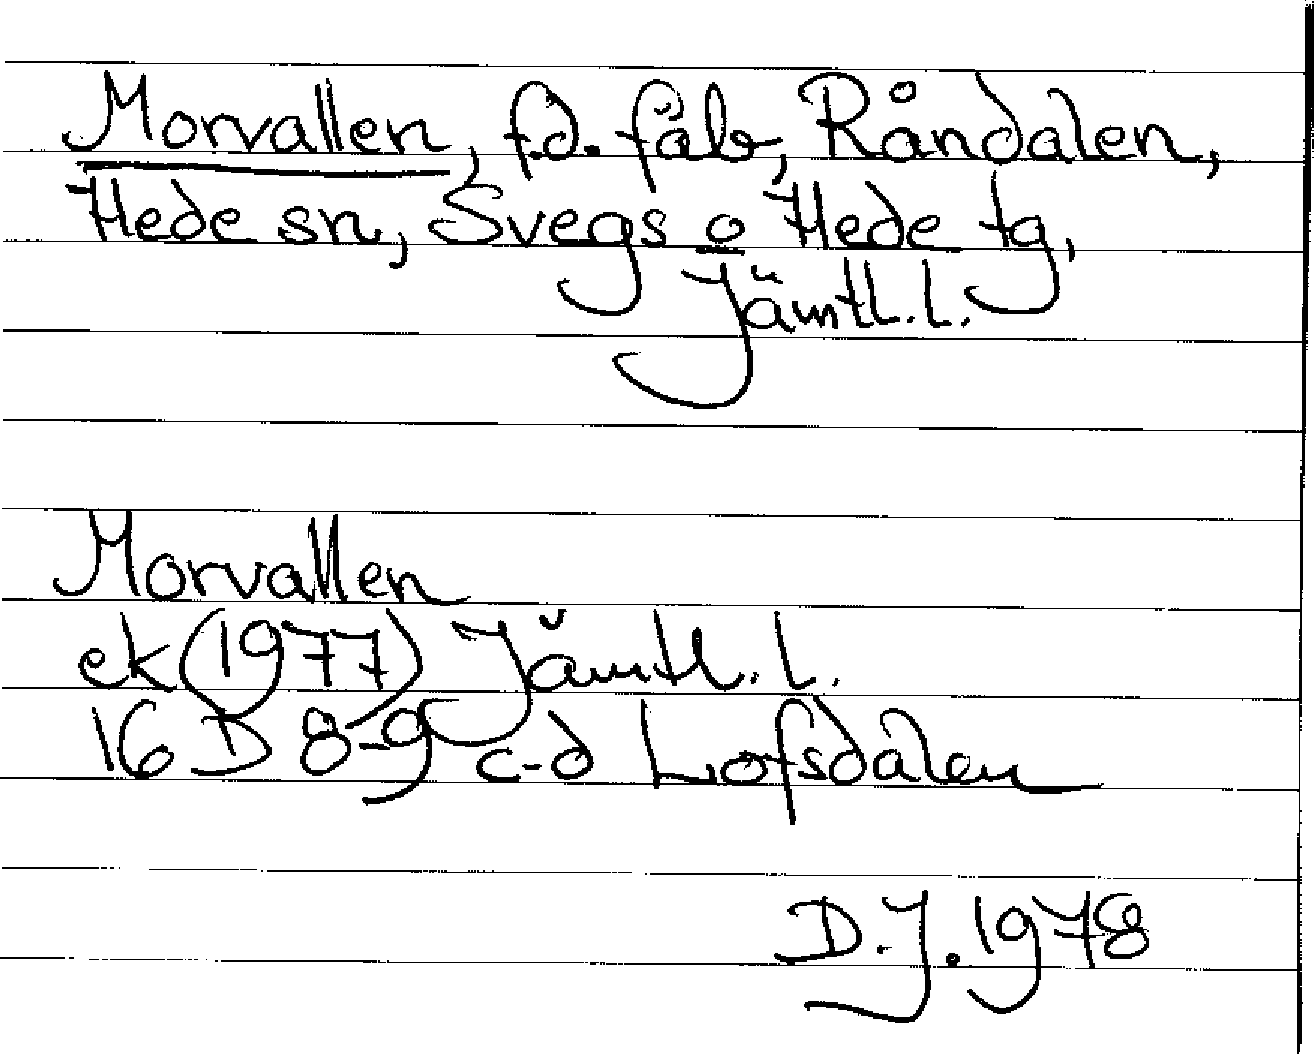 Morvallen, f.d. fäb, Råndalen,
Hede sn, Svegs o Hede tg,
Jämtl. l.
Morvallen
ek (1977) Jämtl. l.
16 D 8-9 c-d Lofsdalen
D.J. 1978